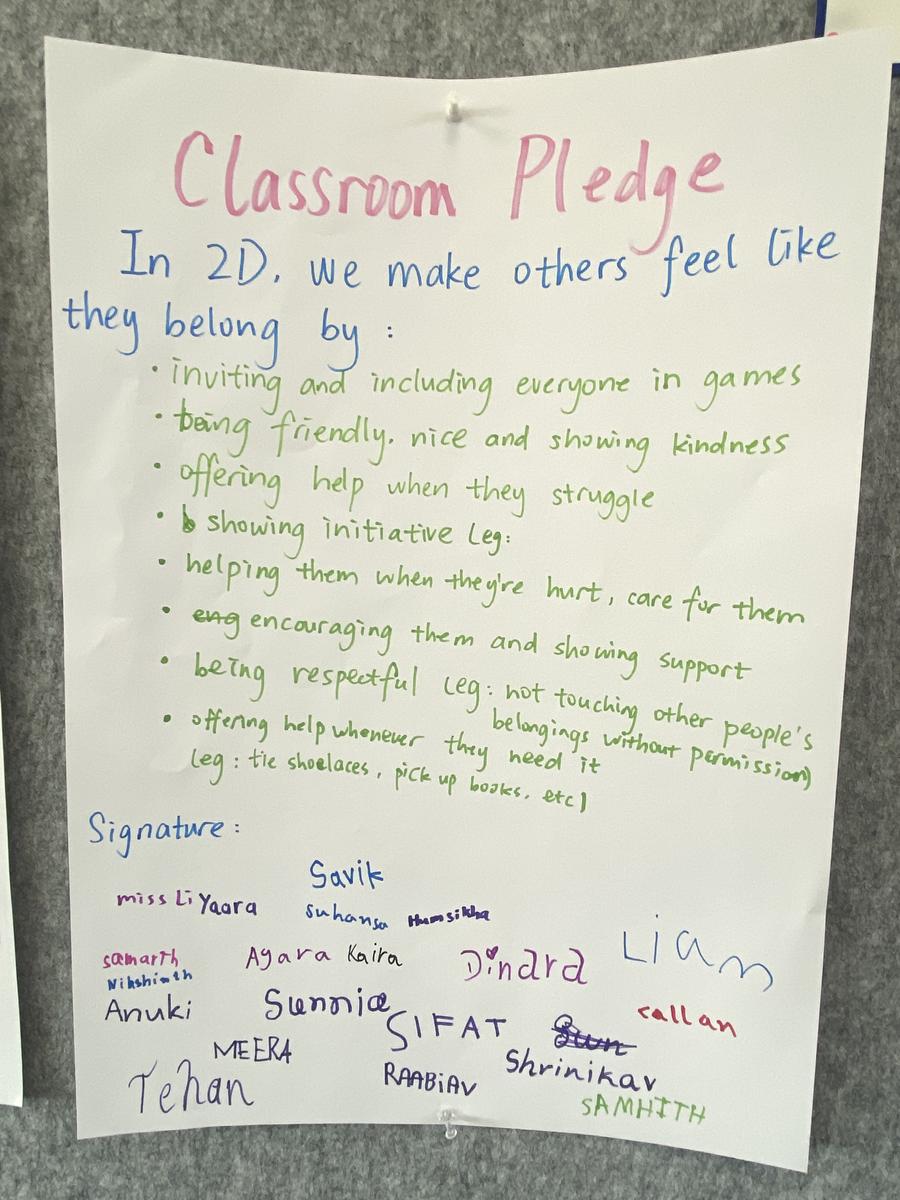 Classroom Pledge
In 2D, we make others feel like
they belong by :
• inviting and including everyone in games
• being friendly, nice and showing kindness
• offering help when they struggle
• showing initiative (eg:
• helping them when they're hurt, care for them
• eng encouraging them and showing support
• being respectful (eg: not touching other people's
belongings without permission)
• offering help whenever they need it
(eg: tie shoelaces, pick up books, etc)
Signature :
Savik
miss Li Yaara
suhansa Humsikha
Liam
samarth Agara Kaira Dinara
Nikshinth
Anuki Sunnia SIFAT callan
MEERA Shrinikav
Tehan RAABiAV SAMHITH